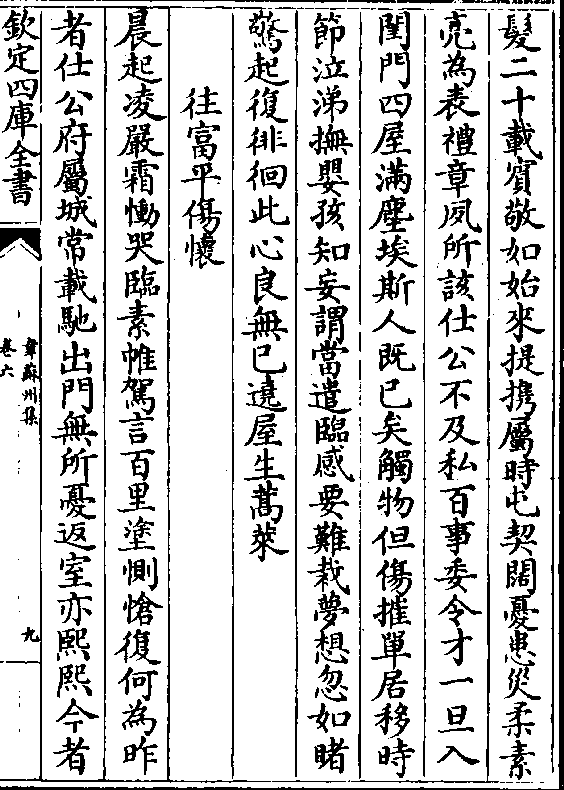 髮二十載賔敬如始來提攜屬時屯契闊憂患災柔素
亮為表禮章夙所該仕公不及私百事委令才一旦入
閨門四屋滿塵埃斯人既已矣觸物但傷摧單居移時
節泣涕撫嬰孩知妄謂當遣臨感要難裁夢想忽如睹
驚起復徘徊此心良無已遶屋生蒿萊
往富平傷懷
晨起凌嚴霜慟哭臨素帷駕言百里塗惻愴復何為昨
者仕公府屬城常載馳出門無所憂返室亦熙熙今者
欽定四庫全書
韋蘇州集
卷六
九